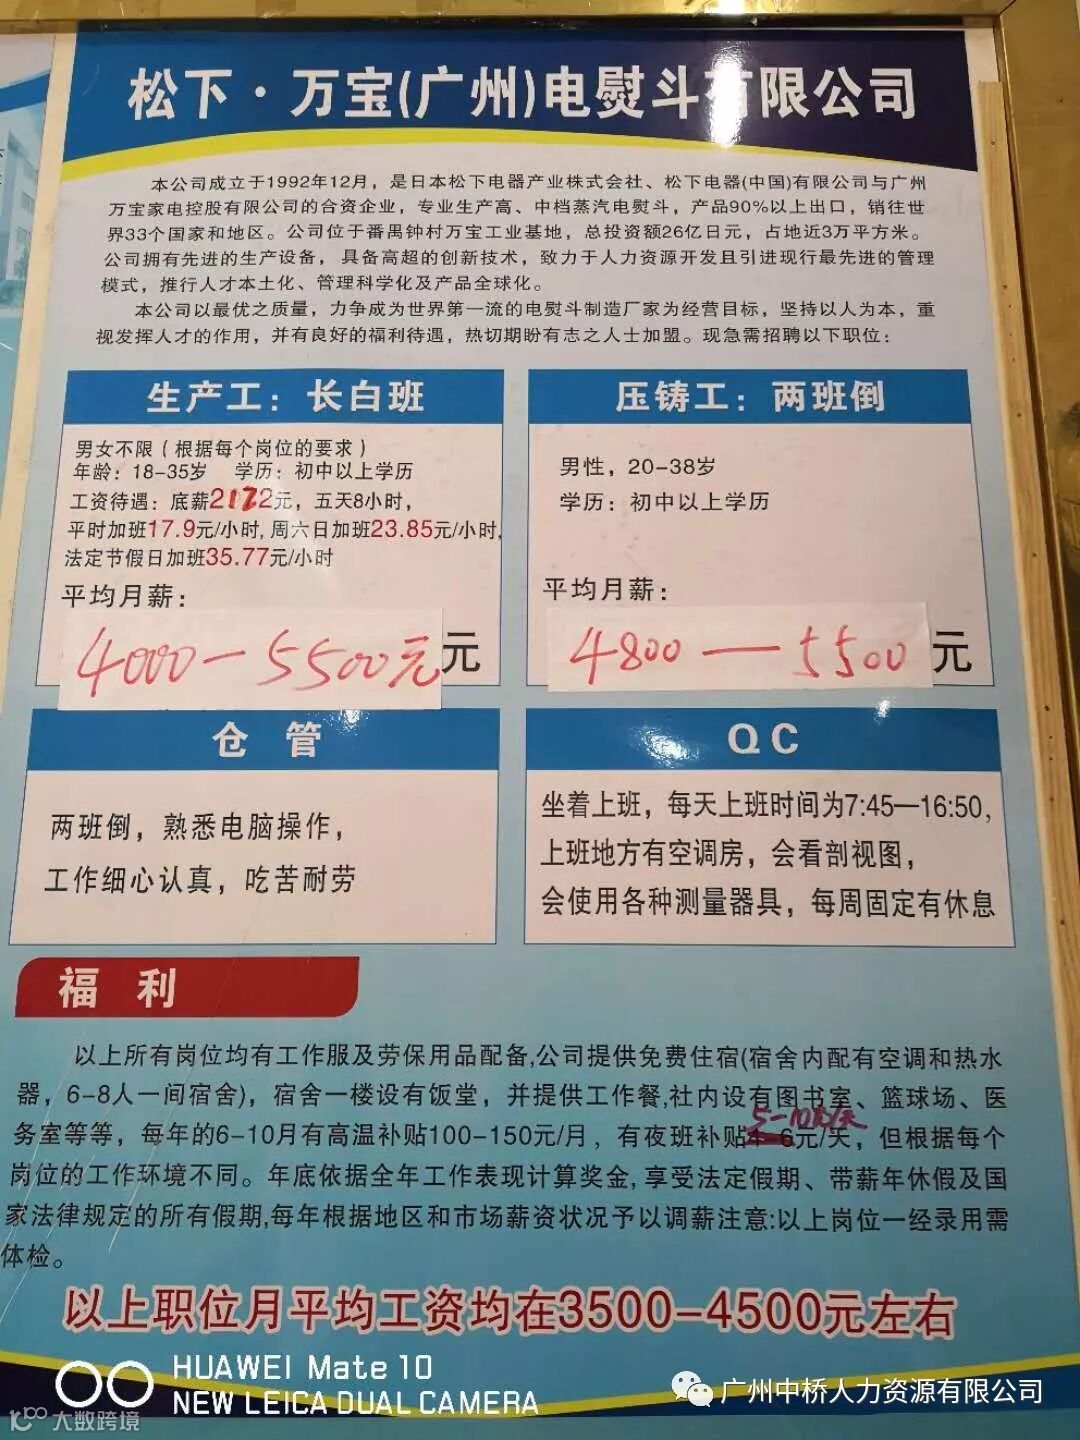 松下·万宝(广州)电熨斗有限公司
本公司成立于1992年12月，是日本松下电器产业株式会社、松下电器(中国)有限公司与广州
万宝家电控股有限公司的合资企业，专业生产高、中档蒸汽电熨斗，产品90%以上出口，销往世
界33个国家和地区。公司位于番禺钟村万宝工业基地，总投资额26亿日元，占地近3万平方米。
公司拥有先进的生产设备，具备高超的创新技术，致力于人力资源开发且引进现行最先进的管理
模式，推行人才本土化、管理科学化及产品全球化。
本公司以最优之质量，力争成为世界第一流的电熨斗制造厂家为经营目标，坚持以人为本，重
视发挥人才的作用，并有良好的福利待遇，热切期盼有志之人士加盟。现急需招聘以下职位：
生产工：长白班
男女不限（根据每个岗位的要求）
年龄：18-35岁 学历：初中以上学历
工资待遇：底薪2172元，五天8小时，
平时加班17.9元/小时,周六日加班23.85元/小时,
法定节假日加班35.77元/小时
平均月薪：
4000—5500元元
压铸工：两班倒
男性，20-38岁
学历：初中以上学历
平均月薪：
4800—5500元
仓 管
两班倒，熟悉电脑操作，
工作细心认真，吃苦耐劳
QC
坐着上班，每天上班时间为7:45—16:50，
上班地方有空调房，会看剖视图，
会使用各种测量器具，每周固定有休息
福 利
以上所有岗位均有工作服及劳保用品配备,公司提供免费住宿(宿舍内配有空调和热水
器，6-8人一间宿舍)，宿舍一楼设有饭堂，并提供工作餐,社内设有图书室、篮球场、医
5-10元/天
务室等等，每年的6-10月有高温补贴100-150元/月，有夜班补贴4-6元/天，但根据每个
岗位的工作环境不同。年底依据全年工作表现计算奖金,享受法定假期、带薪年休假及国
家法律规定的所有假期,每年根据地区和市场薪资状况予以调薪注意:以上岗位一经录用需
体检。
以上职位月平均工资均在3500-4500元左右
HUAWEI Mate 10
NEW LEICA DUAL CAMERA
大数跨境
广州中桥人力资源有限公司